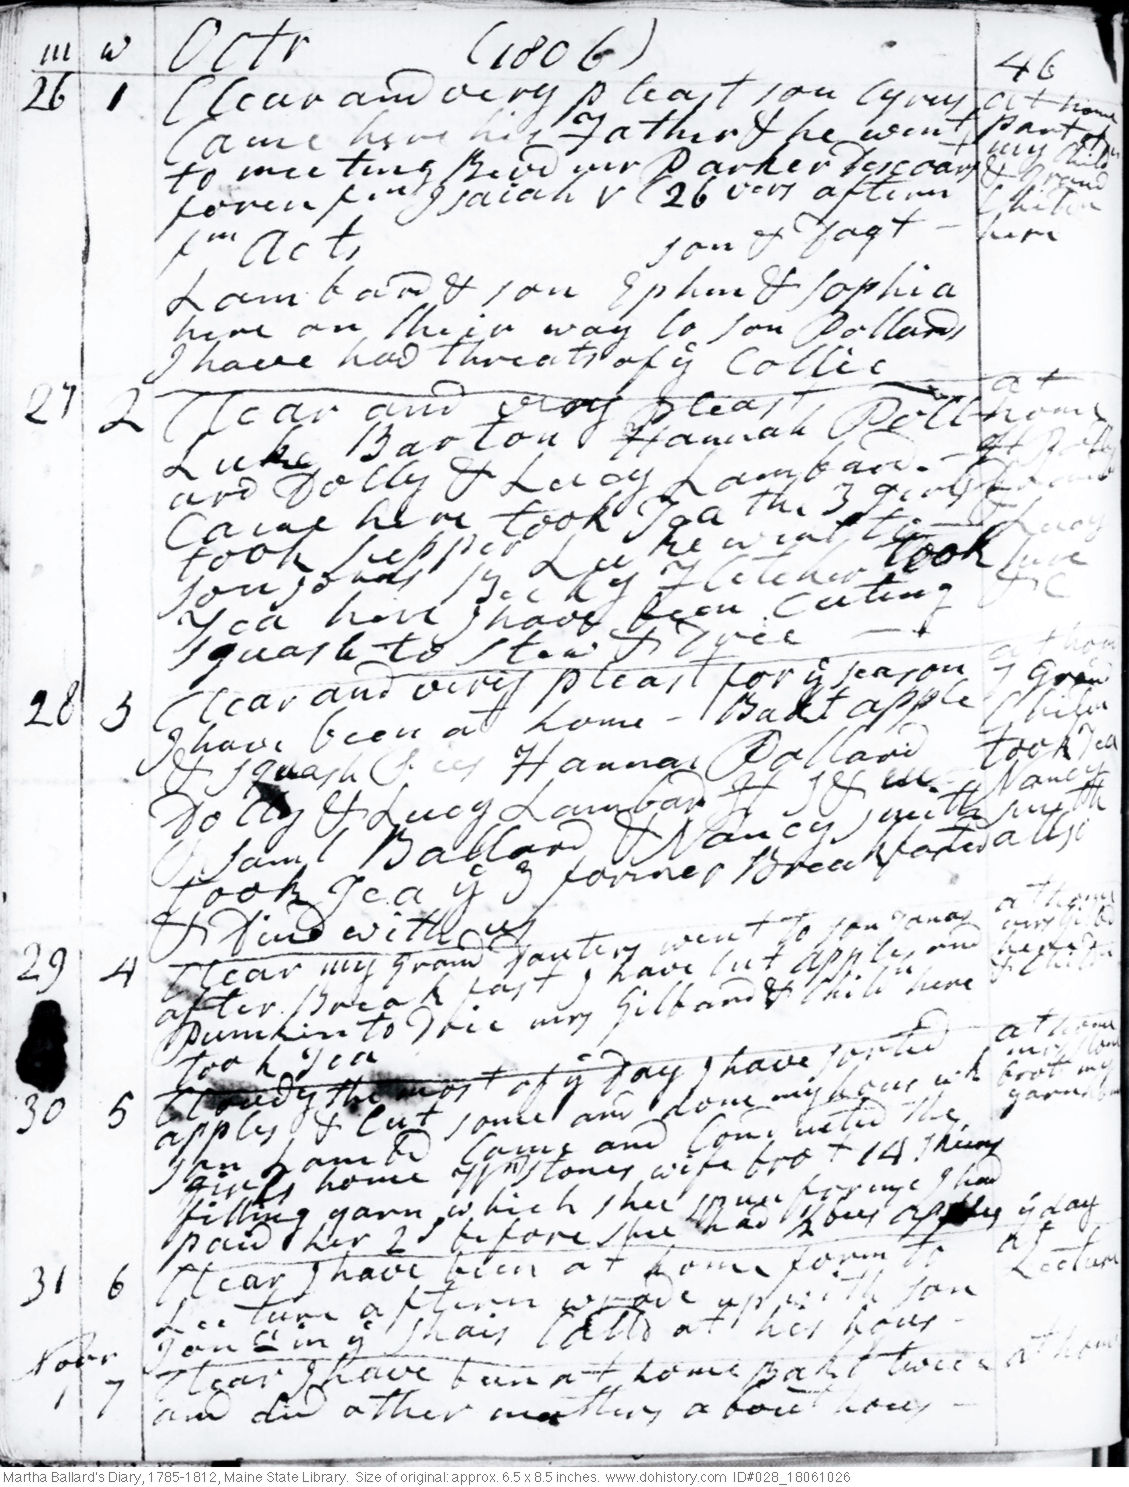 m w Octr (1806) 46
26 1 Clear and very pleast son Cyrus at home
Came here his Father & he went part of
to meeting Revd mr Parker Discoars my Child
foren fm Isaiah & 26 vers aftern & Grand
fm Acts son & Dagt - Childn here
Lambard & son Ephm & Sophia
here on their way to son Pollards
I have had threats of ÿ Collic
27 2 Clear and very pleast Poll at home
Luke Barton Hannah
and Dolly & Lucy Lambard
Came here took Tea the 3 girls Lucy
took supper Luke went to here
son Jonas Becky Fletcher took &C
Tea here I have been Cuting
squash to stew & Drie
28 3 Clear and very pleast for ÿ season at home
I have been at home - Bakt apple 3 Grand
& squash Pies Hannah Pollard Childn
Dolly & Lucy Lambard took Tea
Saml Ballard & Nancy Smith Nancy Smith
took Tea ÿ 3 former Breakfasted allso
& Dind with us
29 4 Clear my Grand Dauters went to son Jonas at home
after Breakfast I have Cut apples and mrs Gilbd
Pumkin to Drie mrs Gilbard & Child here here
took Tea & Childn
30 5 Cloudy the most of ÿ Day I have sorted at home
apples & Cut some and done my hous wk mrs Ston
son Lambd Came and Conducted the brot my
girls home mr Stones wife brot 14 skeins yarn hom
filling yarn which shee spun for me I had
paid her 2/ before shee had ½ bus apples ÿ day
31 6 Clear I have been at home foren to at
Lecture aftern wrode up with son Lecture
Jons in ÿ shais Calld at his hous -
Novr
1 7 Clear I have been at home Bakt twice at home
and did other matters about hous -
Martha Ballard's Diary, 1785-1812, Maine State Library. Size of original: approx. 6.5 x 8.5 inches. www.dohistory.com ID#028_18061026